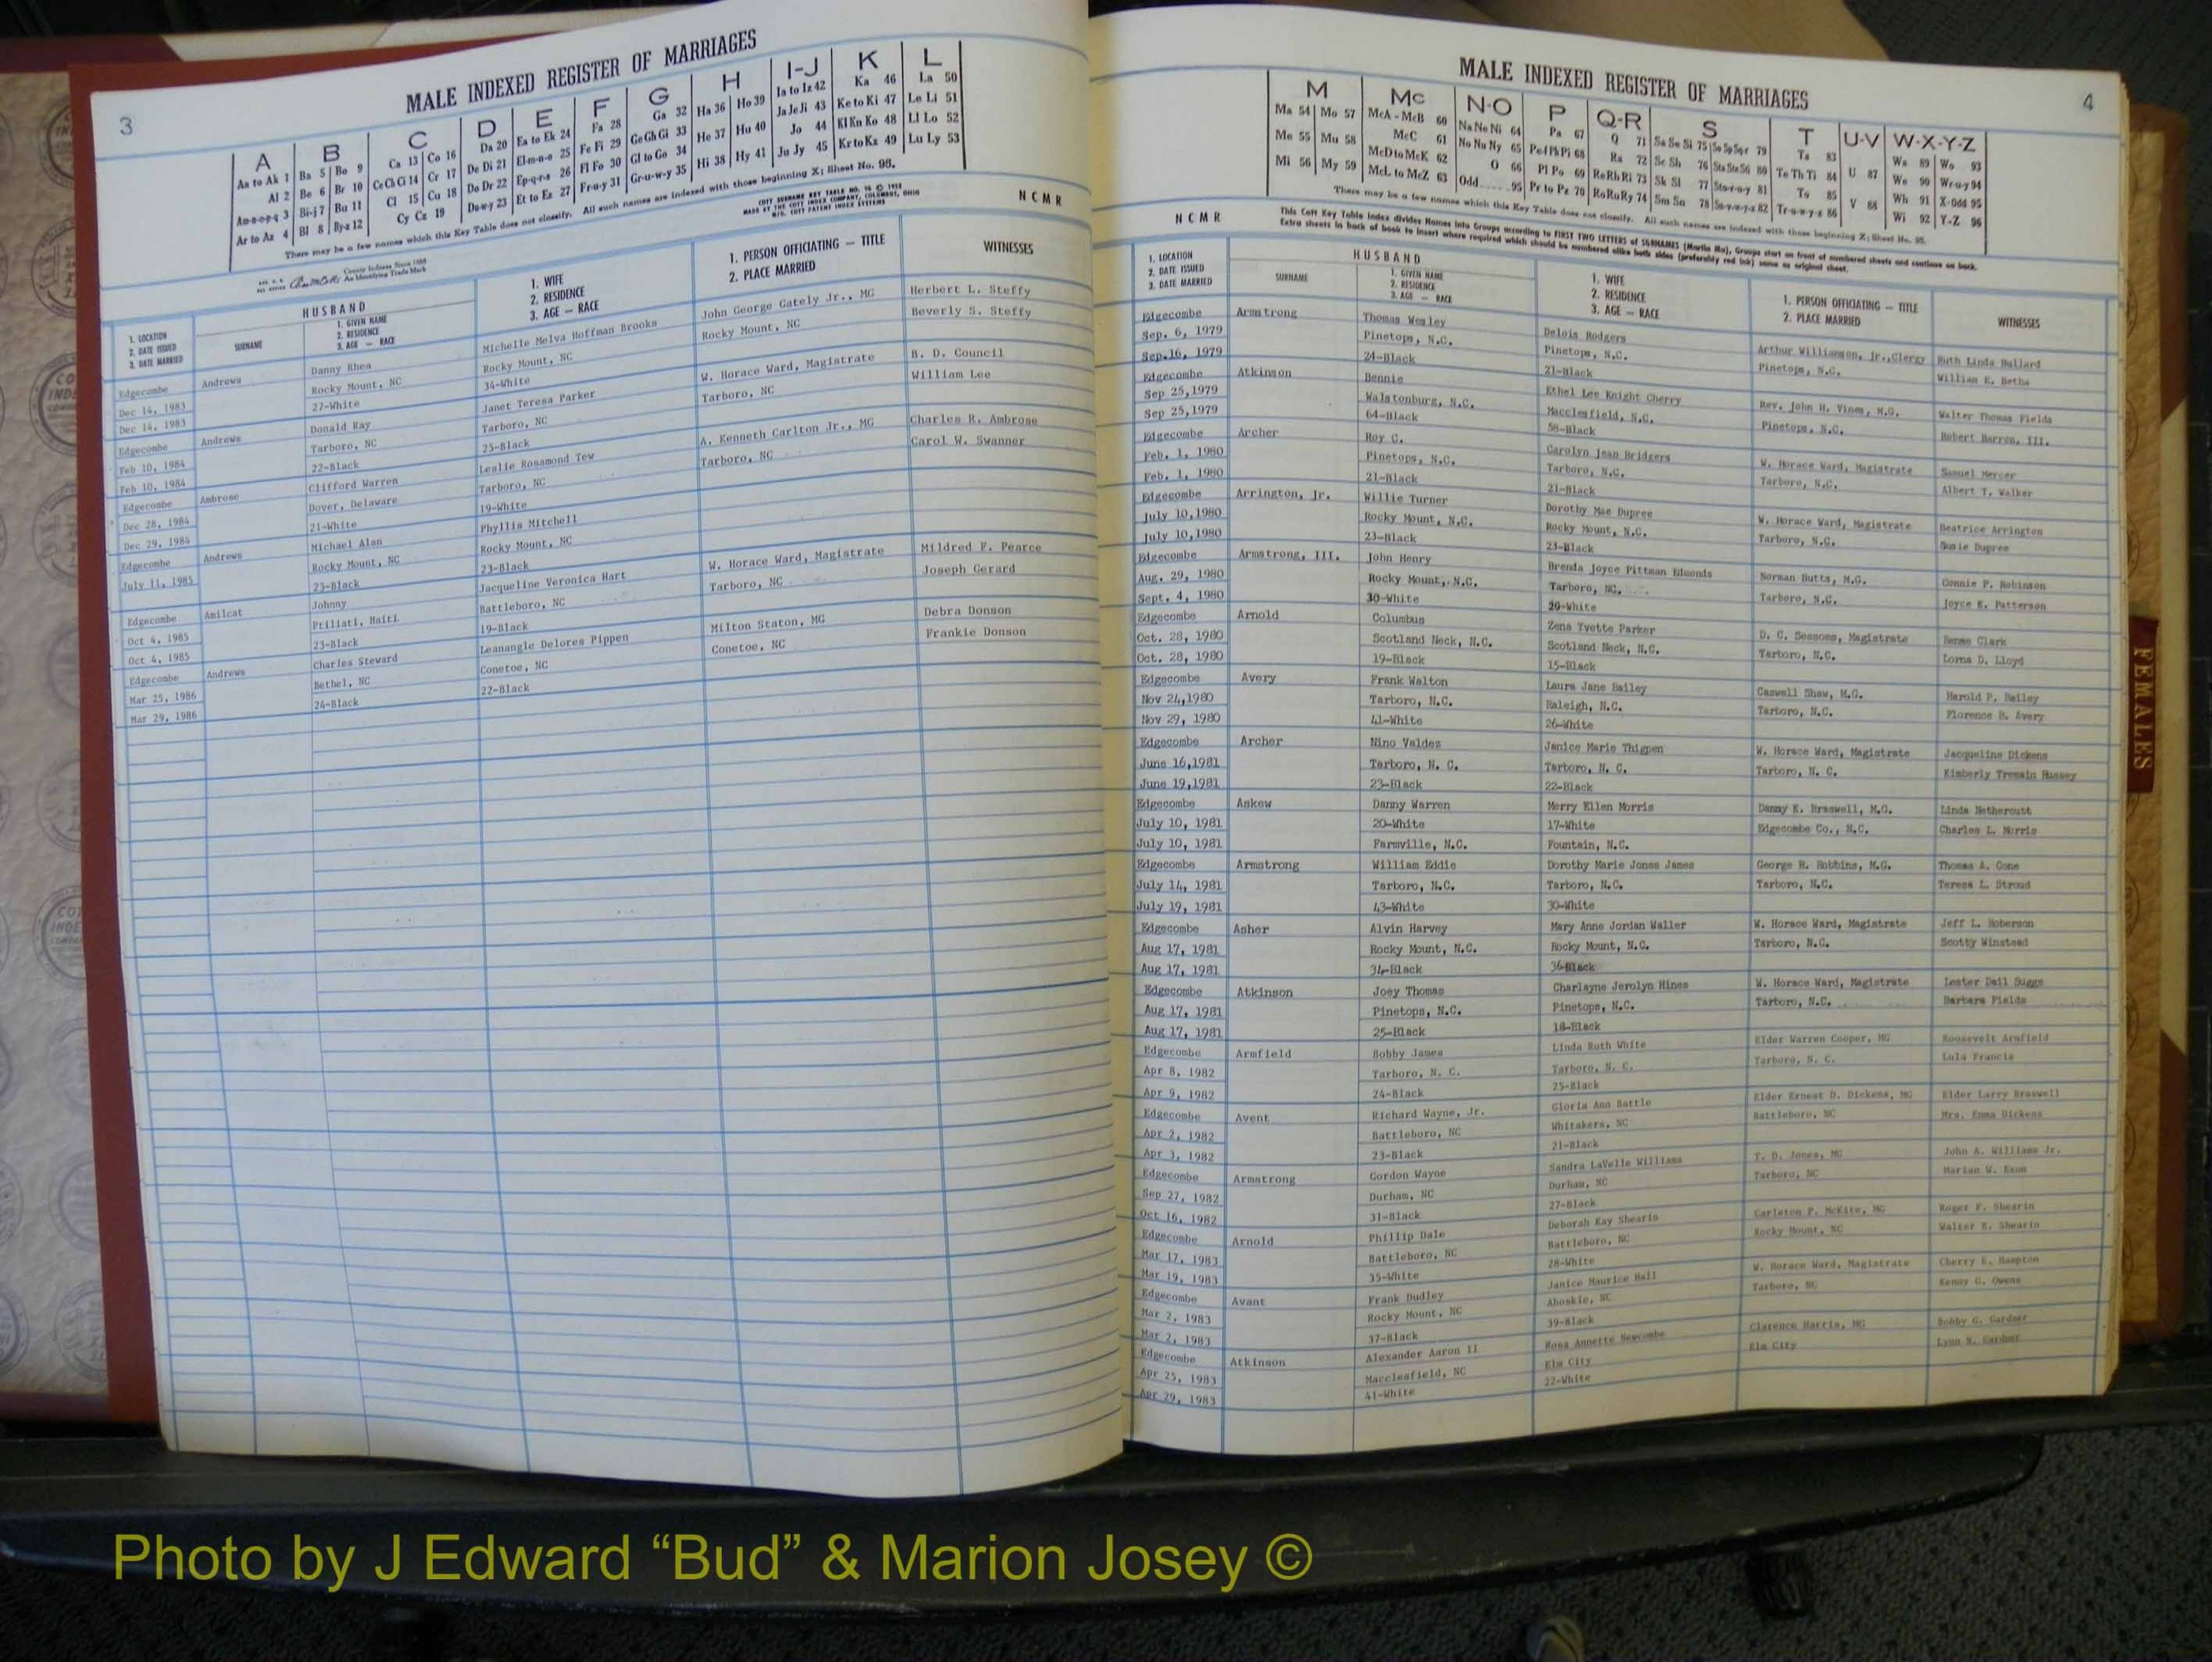 3
MALE INDEXED REGISTER OF MARRIAGES
A B C D E F G H I-J K L
Aa to Ak 1 Ba 5 Bo 9 Ca 13 Co 16 Da 20 Ea to Ek 24 Fa 28 Ga 32 Ha 36 Ho 39 Ia to Iz 42 Ka 46 La 50
Al 2 Be 6 Br 10 Ce Ch Ci 14 Cr 17 De Di 21 El-m-n-o 25 Fe Fi 29 Ge Gh Gi 33 He 37 Hu 40 Ja Je Ji 43 Ke to Ki 47 Le Li 51
Am-n-o-p-q 3 Bi-j 7 Bu 11 Cl 15 Cu 18 Do Dr 22 Ep-q-r-s 26 Fl Fo 30 Gl to Go 34 Hi 38 Hy 41 Jo 44 Kl Kn Ko 48 Ll Lo 52
Ar to Az 4 Bl 8 By-z 12 Cy Cz 19 Du-w-y 23 Et to Ez 27 Fr-u-y 31 Gr-u-w-y 35 Ju Jy 45 Kr to Kz 49 Lu Ly 53
There may be a few names which this Key Table does not classify. All such names are indexed with those beginning X; Sheet No. 95.
County Indexes Since 1888
An Identifying Trade Mark
MADE BY THE COTT INDEX COMPANY, COLUMBUS, OHIO
MFG. COTT PATENT INDEX SYSTEMS
N C M R
1. LOCATION
2. DATE ISSUED
3. DATE MARRIED
HUSBAND
SURNAME
1. GIVEN NAME
2. RESIDENCE
3. AGE — RACE
1. WIFE
2. RESIDENCE
3. AGE — RACE
1. PERSON OFFICIATING — TITLE
2. PLACE MARRIED
WITNESSES
Edgecombe Andrews Danny Rhea Michelle Melva Hoffman Brooks John George Gately Jr., MG Herbert L. Steffy
Dec 14, 1983 Rocky Mount, NC Rocky Mount, NC Rocky Mount, NC Beverly S. Steffy
Dec 14, 1983 27-White 34-White
Edgecombe Andrews Donald Ray Janet Teresa Parker W. Horace Ward, Magistrate B. D. Council
Feb 10, 1984 Tarboro, NC Tarboro, NC Tarboro, NC William Lee
Feb 10, 1984 22-Black 25-Black
Edgecombe Ambrose Clifford Warren Leslie Rosamond Tew A. Kenneth Carlton Jr., MG Charles R. Ambrose
Dec 28, 1984 Dover, Delaware Tarboro, NC Tarboro, NC Carol W. Swanner
Dec 29, 1984 21-White 19-White
Edgecombe Andrews Michael Alan Phyllis Mitchell
July 11, 1985 Rocky Mount, NC Rocky Mount, NC
23-Black 23-Black
Edgecombe Amilcat Johnny Jacqueline Veronica Hart W. Horace Ward, Magistrate Mildred F. Pearce
Oct 4, 1985 Ptiliati, Haiti Battleboro, NC Tarboro, NC Joseph Gerard
Oct 4, 1985 23-Black 19-Black
Edgecombe Andrews Charles Steward Leanangle Delores Pippen Milton Staton, MG Debra Donson
Mar 25, 1986 Bethel, NC Conetoe, NC Conetoe, NC Frankie Donson
Mar 29, 1986 24-Black 22-Black
4
MALE INDEXED REGISTER OF MARRIAGES
M Mc N-O P Q-R S T U-V W-X-Y-Z
Ma 54 Mo 57 McA - McB 60 Na Ne Ni 64 Pa 67 Q 71 Sa Se Si 75 So Sp Sq-r 79 Ta 83 Wa 89 Wo 93
Me 55 Mu 58 McC 61 No Nu Ny 65 Pe Pf Ph Pi 68 Ra 72 Sc Sh 76 Sta Ste Sti 80 Te Th Ti 84 U 87 We 90 Wr-u-y 94
Mi 56 My 59 McD to McK 62 O 66 Pl Po 69 Re Rh Ri 73 Sk Sl 77 Sto-r-u-y 81 To 85 Wh 91 X-Odd 95
McL to McZ 63 Odd 95 Pr to Pz 70 Ro Ru Ry 74 Sm Sn 78 Su-v-w-y-z 82 Tr-u-w-y-z 86 V 88 Wi 92 Y-Z 96
There may be a few names which this Key Table does not classify. All such names are indexed with those beginning X; Sheet No. 95.
N C M R
This Cott Key Table Index divides Names into Groups according to FIRST TWO LETTERS of SURNAMES (Martin Ma), Groups start on front of numbered sheets and continue on back.
Extra sheets in back of book to insert where required which should be numbered alike both sides (preferably red ink) same as original sheet.
1. LOCATION
2. DATE ISSUED
3. DATE MARRIED
HUSBAND
SURNAME
1. GIVEN NAME
2. RESIDENCE
3. AGE — RACE
1. WIFE
2. RESIDENCE
3. AGE — RACE
1. PERSON OFFICIATING — TITLE
2. PLACE MARRIED
WITNESSES
Edgecombe Armstrong Thomas Wesley Delois Rodgers Arthur Williamson, Jr., Clergy Ruth Linda Bullard
Sep. 6, 1979 Pinetops, N.C. Pinetops, N.C. Pinetops, N.C. William E. Betha
Sep.16, 1979 24-Black 21-Black
Edgecombe Atkinson Bennie Ethel Lee Knight Cherry Rev. John H. Vines, M.G. Walter Thomas Fields
Sep 25,1979 Walstonburg, N.C. Macclesfield, N.C. Pinetops, N.C. Robert Barron, III.
Sep 25,1979 64-Black 58-Black
Edgecombe Archer Roy C. Carolyn Jean Bridgers W. Horace Ward, Magistrate Samuel Mercer
Feb. 1, 1980 Pinetops, N.C. Tarboro, N.C. Tarboro, N.C. Albert T. Walker
Feb. 1, 1980 21-Black 21-Black
Edgecombe Arrington, Jr. Willie Turner Dorothy Mae Dupree W. Horace Ward, Magistrate Beatrice Arrington
July 10,1980 Rocky Mount, N.C. Rocky Mount, N.C. Tarboro, N.C. Susie Dupree
July 10,1980 23-Black 23-Black
Edgecombe Armstrong, III. John Henry Brenda Joyce Pittman Edmonds Norman Butts, M.G. Connie P. Robinson
Aug. 29, 1980 Rocky Mount, N.C. Tarboro, NC. Tarboro, N.C. Joyce K. Patterson
Sept. 4, 1980 30-White 29-White
Edgecombe Arnold Columbus Zena Yvette Parker D. C. Sessoms, Magistrate Renee Clark
Oct. 28, 1980 Scotland Neck, N.C. Scotland Neck, N.C. Tarboro, N.C. Lorna D. Lloyd
Oct. 28, 1980 19-Black 15-Black
Edgecombe Avery Frank Walton Laura Jane Bailey Caswell Shaw, M.G. Harold P. Bailey
Nov 24,1980 Tarboro, N.C. Raleigh, N.C. Tarboro, N.C. Florence B. Avery
Nov 29, 1980 41-White 26-White
Edgecombe Archer Nino Valdez Janice Marie Thigpen W. Horace Ward, Magistrate Jacqueline Dickens
June 16,1981 Tarboro, N. C. Tarboro, N. C. Tarboro, N. C. Kimberly Tremain Hussey
June 19,1981 23-Black 22-Black
Edgecombe Askew Danny Warren Merry Ellen Morris Danny E. Braswell, M.G. Linda Nethercutt
July 10, 1981 20-White 17-White Edgecombe Co., N.C. Charles L. Morris
July 10, 1981 Farmville, N.C. Fountain, N.C.
Edgecombe Armstrong William Eddie Dorothy Marie Jones James George R. Robbins, M.G. Thomas A. Cone
July 14, 1981 Tarboro, N.C. Tarboro, N.C. Tarboro, N.C. Teresa L. Stroud
July 19, 1981 43-White 30-White
Edgecombe Asher Alvin Harvey Mary Anne Jordan Waller W. Horace Ward, Magistrate Jeff L. Roberson
Aug 17, 1981 Rocky Mount, N.C. Rocky Mount, N.C. Tarboro, N.C. Scotty Winstead
Aug 17, 1981 34-Black 36-Black
Edgecombe Atkinson Joey Thomas Charlayne Jerolyn Hines W. Horace Ward, Magistrate Lester Dail Suggs
Aug 17, 1981 Pinetops, N.C. Pinetops, N.C. Tarboro, N.C. Barbara Fields
Aug 17, 1981 25-Black 18-Black
Edgecombe Armfield Bobby James Linda Ruth White Elder Warren Cooper, MG Roosevelt Armfield
Apr 8, 1982 Tarboro, N. C. Tarboro, N. C. Tarboro, N. C. Lula Francis
Apr 9, 1982 24-Black 25-Black
Edgecombe Avent Richard Wayne, Jr. Gloria Ann Battle Elder Ernest D. Dickens, MG Elder Larry Braswell
Apr 2, 1982 Battleboro, NC Whitakers, NC Battleboro, NC Mrs. Emma Dickens
Apr 3, 1982 23-Black 21-Black
Edgecombe Armstrong Gordon Wayne Sandra LaVelle Williams T. D. Jones, MG John A. Williams Jr.
Sep 27, 1982 Durham, NC Durham, NC Tarboro, NC Marian W. Exum
Oct 16, 1982 31-Black 27-Black
Edgecombe Arnold Phillip Dale Deborah Kay Shearin Carleton P. McKite, MG Roger F. Shearin
Mar 17, 1983 Battleboro, NC Battleboro, NC Rocky Mount, NC Walter E. Shearin
Mar 19, 1983 35-White 28-White
Edgecombe Avant Frank Dudley Janice Maurice Hall W. Horace Ward, Magistrate Cherry E. Hampton
Mar 2, 1983 Rocky Mount, NC Ahoskie, NC Tarboro, NC Kenny G. Owens
Mar 2, 1983 37-Black 39-Black
Edgecombe Atkinson Alexander Aaron II Rosa Annette Newcombe Clarence Harris, MG Bobby G. Gardner
Apr 25, 1983 Macclesfield, NC Elm City Elm City Lynn N. Gardner
Apr 29, 1983 41-White 22-White
FEMALES
Photo by J Edward “Bud” & Marion Josey ©